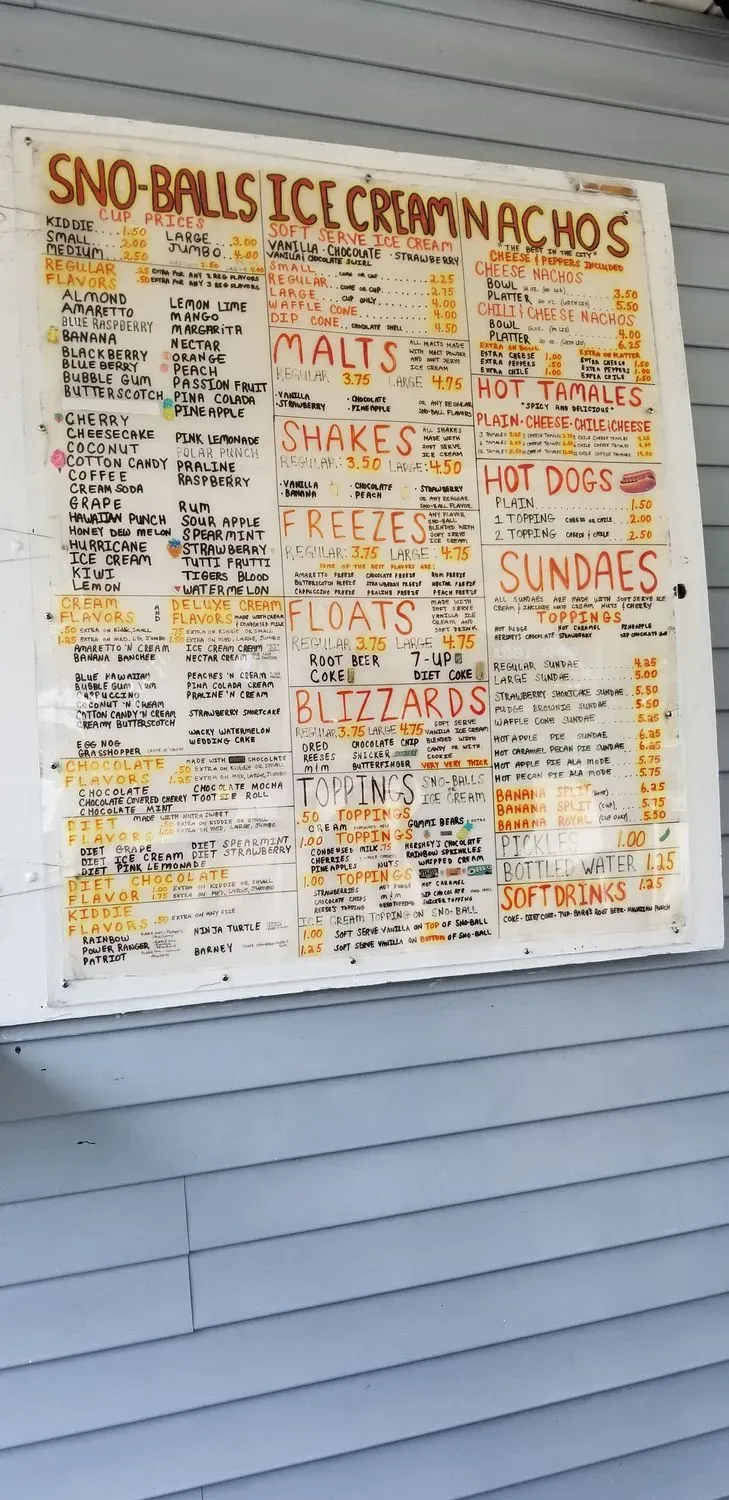 SNO-BALLS
CUP PRICES
KIDDIE....1.50
SMALL.....2.00
MEDIUM....2.50
LARGE....3.00
JUMBO..4.00
REGULAR FLAVORS
.25 EXTRA FOR ANY 2 REG FLAVORS
.50 EXTRA FOR ANY 3 REG FLAVORS
ALMOND
AMARETTO
BLUE RASPBERRY
BANANA
BLACKBERRY
BLUEBERRY
BUBBLE GUM
BUTTERSCOTCH
CHERRY
CHEESECAKE
COCONUT
COTTON CANDY
COFFEE
CREAM SODA
GRAPE
HAWAIIAN PUNCH
HONEY DEW MELON
HURRICANE
ICE CREAM
KIWI
LEMON
LEMON LIME
MANGO
MARGARITA
NECTAR
ORANGE
PEACH
PASSION FRUIT
PINA COLADA
PINEAPPLE
PINK LEMONADE
POLAR PUNCH
PRALINE
RASPBERRY
RUM
SOUR APPLE
SPEARMINT
STRAWBERRY
TUTTI FRUTTI
TIGERS BLOOD
WATERMELON
CREAM FLAVORS
AND
DELUXE CREAM FLAVORS
.50 EXTRA ON KIDDIE, SMALL
1.25 EXTRA ON MED, LG, JUMBO
MADE WITH CREAM & CONDENSED MILK
.75 EXTRA ON KIDDIE OR SMALL
EXTRA ON MED, LARGE, JUMBO
AMARETTO 'N CREAM
BANANA BANCHEE
BLUE HAWAIIAN
BUBBLE GUM YUM
CAPPUCCINO
COCONUT 'N CREAM
COTTON CANDY 'N CREAM
CREAMY BUTTERSCOTCH
EGG NOG
GRASSHOPPER
ICE CREAM CREAM
NECTAR CREAM
PEACHES 'N CREAM
PINA COLADA CREAM
PRALINE 'N CREAM
STRAWBERRY SHORTCAKE
WACKY WATERMELON
WEDDING CAKE
CHOCOLATE FLAVORS
MADE WITH CHOCOLATE
.50 EXTRA ON KIDDIE OR SMALL
1.25 EXTRA ON MED, LARGE, JUMBO
CHOCOLATE
CHOCOLATE COVERED CHERRY
CHOCOLATE MINT
CHOCOLATE MOCHA
TOOTSIE ROLL
DIET FLAVORS
MADE WITH NUTRA SWEET
.50 EXTRA ON KIDDIE OR SMALL
EXTRA ON MED, LARGE, JUMBO
DIET GRAPE
DIET ICE CREAM
DIET PINK LEMONADE
DIET SPEARMINT
DIET STRAWBERRY
DIET CHOCOLATE FLAVOR
1.00 EXTRA ON KIDDIE OR SMALL
1.75 EXTRA ON MED, LARGE, JUMBO
KIDDIE FLAVORS
.50 EXTRA ON ANY SIZE
RAINBOW
POWER RANGER
PATRIOT
NINJA TURTLE
BARNEY
ICE CREAM
SOFT SERVE ICE CREAM
VANILLA · CHOCOLATE · STRAWBERRY
VANILLA & CHOCOLATE SWIRL
SMALL....CONE OR CUP
REGULAR..CONE OR CUP....2.25
LARGE....CUP ONLY....2.75
WAFFLE CONE....4.00
DIP CONE..CHOCOLATE SHELL
4.00
4.50
MALTS
ALL MALTS MADE
WITH MALT POWDER
AND SOFT SERVE
ICE CREAM
REGULAR 3.75 LARGE 4.75
·VANILLA
·STRAWBERRY
·CHOCOLATE
·PINEAPPLE
OR ANY REGULAR
SNO-BALL FLAVORS
SHAKES
ALL SHAKES
MADE WITH
SOFT SERVE
ICE CREAM
REGULAR: 3.50 LARGE: 4.50
·VANILLA
·BANANA
·CHOCOLATE
·PEACH
·STRAWBERRY
OR ANY REGULAR
SNO-BALL FLAVOR
FREEZES
ANY FLAVOR
SNO-BALL
BLENDED WITH
SOFT SERVE
ICE CREAM
REGULAR: 3.75 LARGE: 4.75
SOME OF THE BEST FLAVORS ARE:
AMARETTO FREEZE CHOCOLATE FREEZE RUM FREEZE
BUTTERSCOTCH FREEZE STRAWBERRY FREEZE NECTAR FREEZE
CAPPUCCINO FREEZE PRALINE FREEZE PEACH FREEZE
FLOATS
MADE WITH
SOFT SERVE
VANILLA ICE
CREAM AND
SOFT DRINK
REGULAR 3.75 LARGE 4.75
ROOT BEER 7-UP
COKE DIET COKE
BLIZZARDS
REGULAR 3.75 LARGE 4.75
SOFT SERVE
VANILLA ICE CREAM
BLENDED WITH
CANDY OR WITH
COOKIE
OREO CHOCOLATE CHIP
REESES SNICKER
M/M BUTTERFINGER
VERY VERY THICK
TOPPINGS
SNO-BALLS
OR
ICE CREAM
.50 TOPPINGS
CREAM
GUMMI BEARS
1.00 TOPPINGS
CONDENSED MILK .75
CHERRIES
PINEAPPLES NUTS
HERSHEY'S CHOCOLATE
RAINBOW SPRINKLES
WHIPPED CREAM
1.00 TOPPINGS
STRAWBERRIES
HOT FUDGE
HOT CARAMEL
CHOCOLATE CHIPS
M/M
DIP CHOCOLATE
REESE'S TOPPING
OREO TOPPING
SNICKER TOPPING
ICE CREAM TOPPING ON SNO-BALL
1.00 SOFT SERVE VANILLA ON TOP OF SNO-BALL
1.25 SOFT SERVE VANILLA ON BOTTOM OF SNO-BALL
NACHOS
"THE BEST IN THE CITY"
CHEESE & PEPPERS INCLUDED
CHEESE NACHOS
BOWL....3.50
PLATTER....5.50
CHILI & CHEESE NACHOS
BOWL....4.00
PLATTER....6.25
EXTRA ON BOWL
EXTRA CHEESE 1.00
EXTRA PEPPERS .50
EXTRA CHILE 1.00
EXTRA ON PLATTER
EXTRA CHEESE 1.50
EXTRA PEPPERS 1.00
EXTRA CHILE 1.50
HOT TAMALES
"SPICY AND DELICIOUS"
PLAIN·CHEESE·CHILE & CHEESE
HOT DOGS
PLAIN....1.50
1 TOPPING CHEESE OR CHILE..2.00
2 TOPPING CHEESE & CHILE..2.50
SUNDAES
ALL SUNDAES ARE MADE WITH SOFT SERVE ICE
CREAM & INCLUDE WHIP CREAM NUTS & CHERRY
TOPPINGS
HOT FUDGE HOT CARAMEL PINEAPPLE
HERSHEY'S CHOCOLATE STRAWBERRY DIP CHOCOLATE
REGULAR SUNDAE....4.25
LARGE SUNDAE....5.00
STRAWBERRY SHORTCAKE SUNDAE..5.50
FUDGE BROWNIE SUNDAE..5.50
WAFFLE CONE SUNDAE....5.25
HOT APPLE PIE SUNDAE..6.25
HOT CARAMEL PECAN PIE SUNDAE..6.25
HOT APPLE PIE ALA MODE....5.75
HOT PECAN PIE ALA MODE....5.75
BANANA SPLIT (BOAT)..6.25
BANANA SPLIT (CUP)..5.75
BANANA ROYAL (CUP ONLY)..5.50
PICKLES 1.00
BOTTLED WATER 1.25
SOFT DRINKS 1.25
COKE · DIET COKE · 7UP · BARQ'S ROOT BEER · HAWAIIAN PUNCH